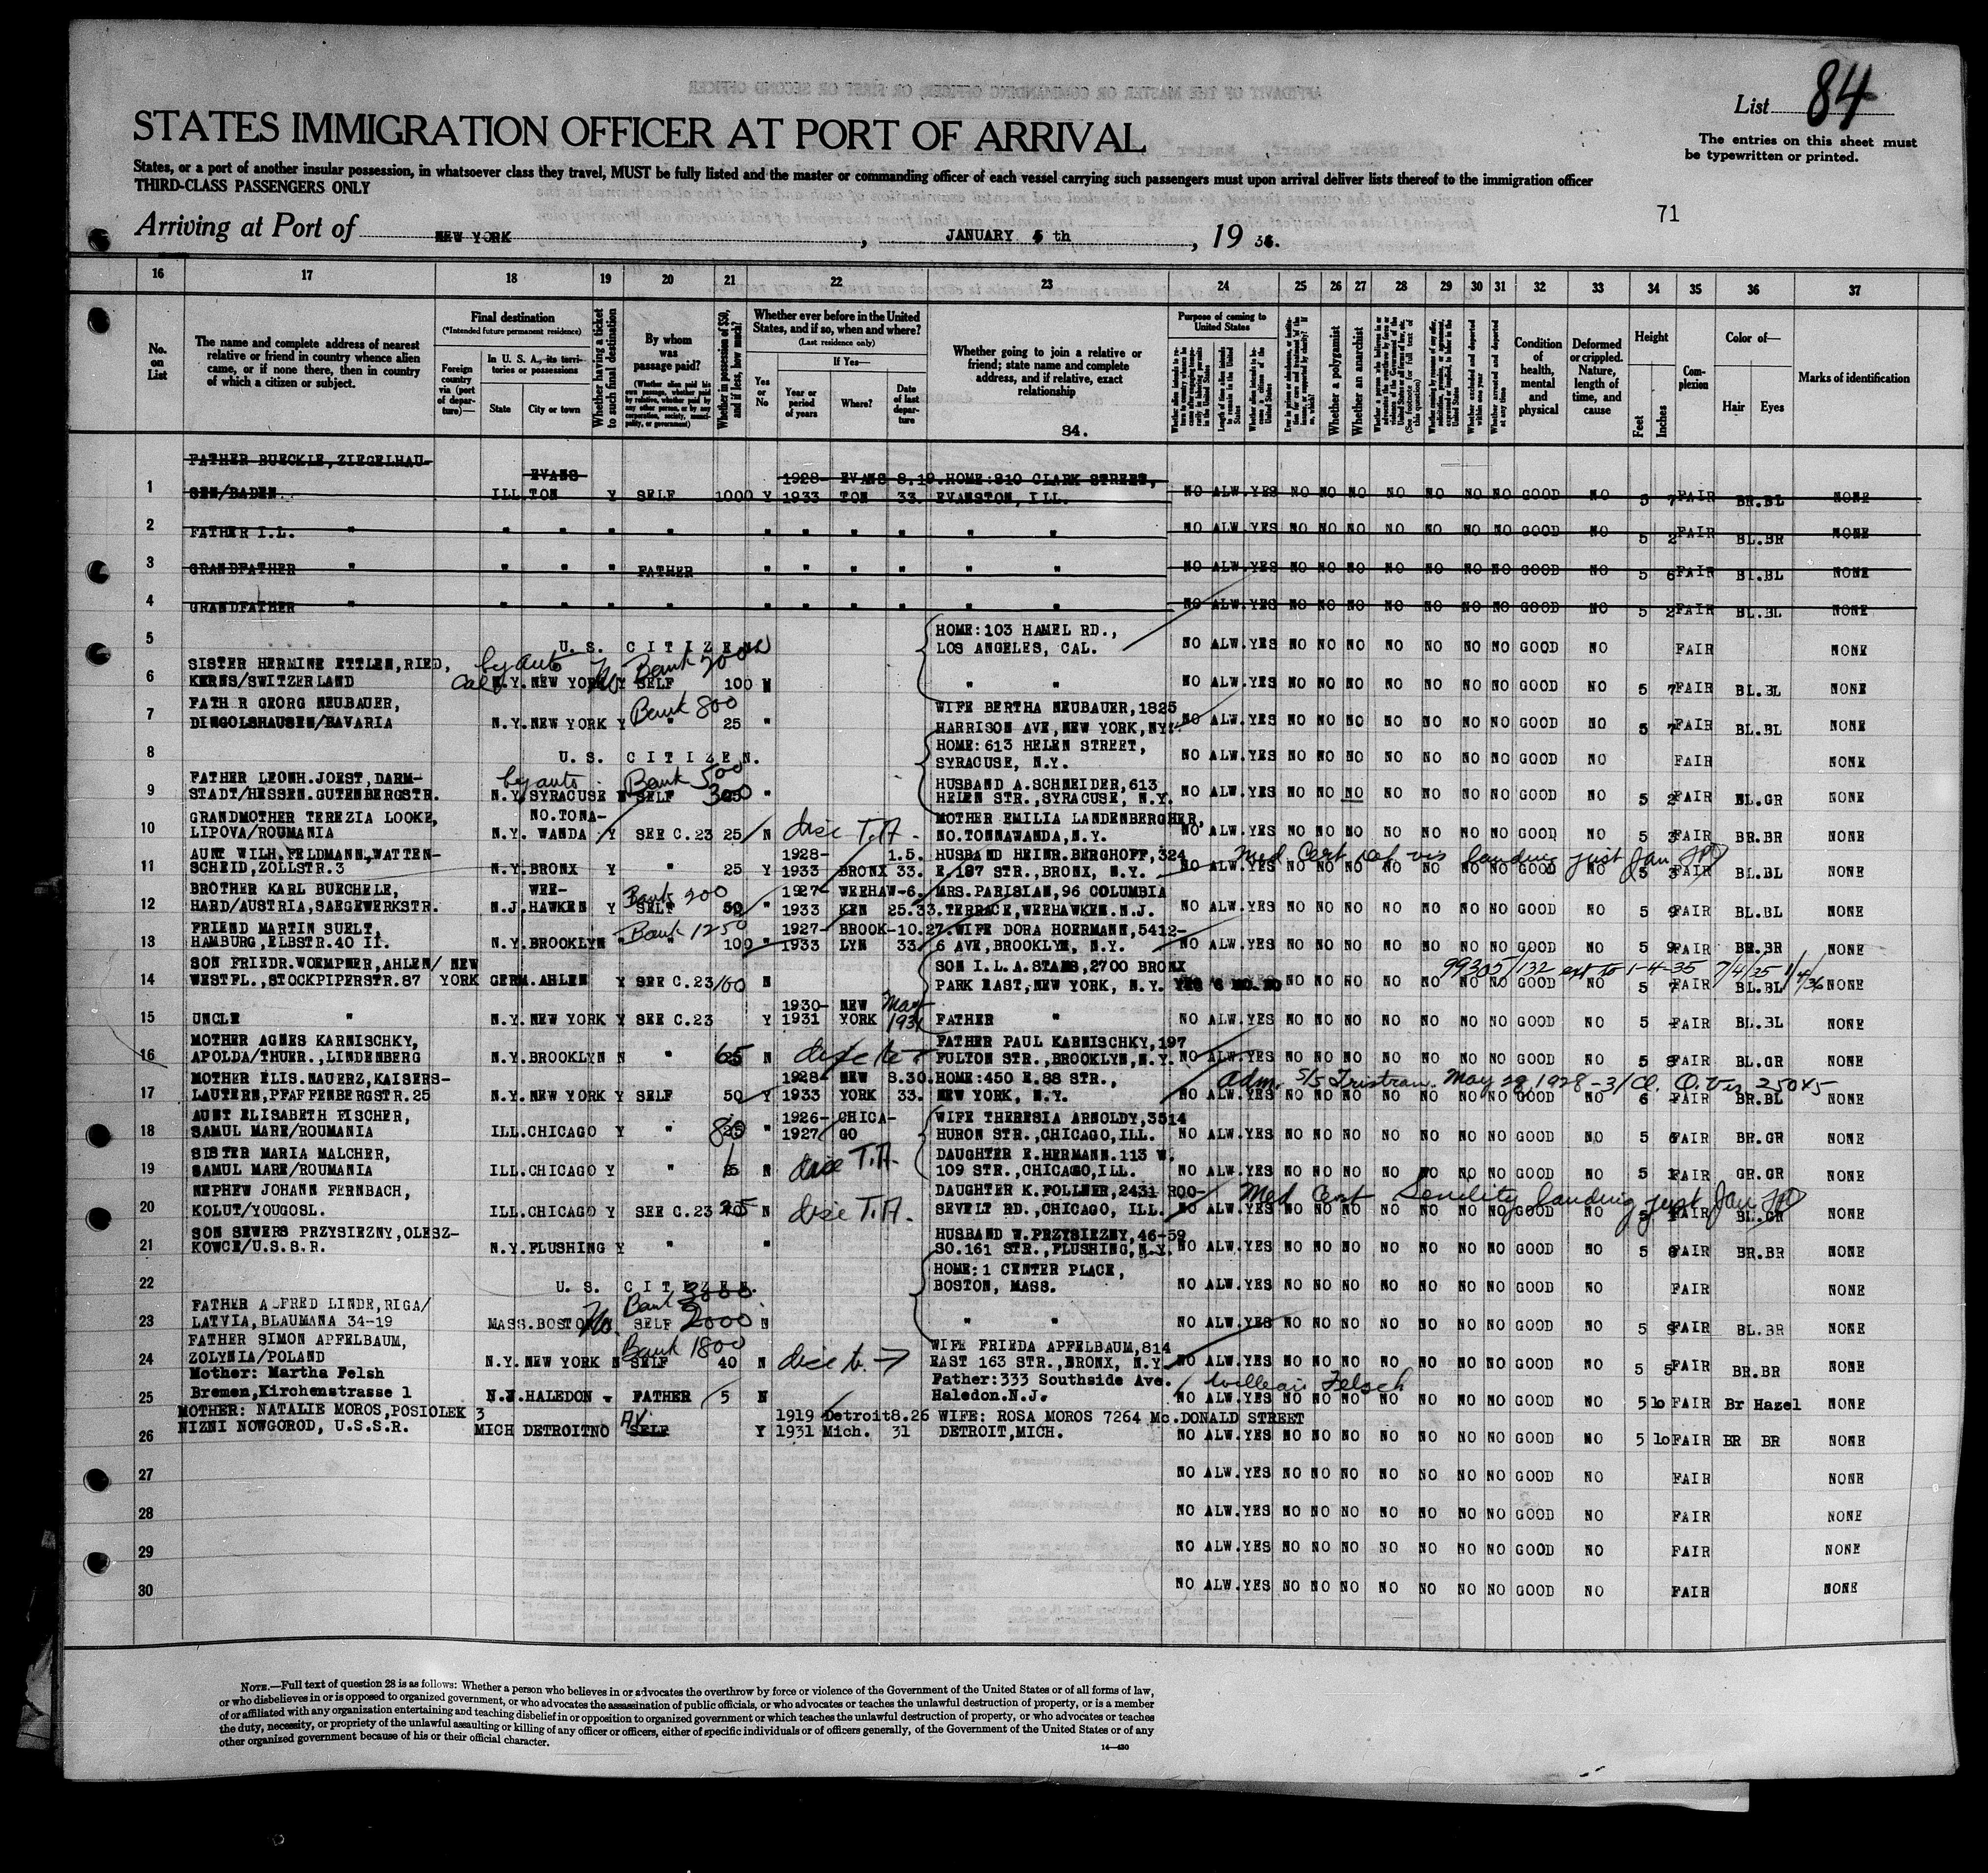 List 84
STATES IMMIGRATION OFFICER AT PORT OF ARRIVAL
The entries on this sheet must
be typewritten or printed.
States, or a port of another insular possession, in whatsoever class they travel, MUST be fully listed and the master or commanding officer of each vessel carrying such passengers must upon arrival deliver lists thereof to the immigration officer
THIRD-CLASS PASSENGERS ONLY
71
Arriving at Port of NEW YORK, JANUARY 5 th, 19 34.
16 17 18 19 20 21 22 23 24 25 26 27 28 29 30 31 32 33 34 35 36 37
No. on List
The name and complete address of nearest relative or friend in country whence alien came, or if none there, then in country of which a citizen or subject.
Final destination
(*Intended future permanent residence)
Foreign country via (port of departure)—
In U. S. A., its territories or possessions
State City or town
Whether having a ticket to such final destination
By whom was passage paid?
(Whether alien paid his own passage, whether paid by relative, whether paid by any other person, or by any corporation, society, municipality, or government)
Whether in possession of $50, and if less, how much?
Whether ever before in the United States, and if so, when and where?
(Last residence only)
Yes or No
If Yes—
Year or period of years Where? Date of last departure
Whether going to join a relative or friend; state name and complete address, and if relative, exact relationship
84.
Purpose of coming to United States
Length of time alien intends to remain in the United States
Whether alien intends to become a citizen of the United States
Whether a polygamist
Whether an anarchist
Whether excluded and deported within one year
Whether arrested and deported at any time
Condition of health, mental and physical
Deformed or crippled. Nature, length of time, and cause
Height
Feet Inches
Complexion
Color of—
Hair Eyes
Marks of identification
1 FATHER BUECKLE, ZIEGELHAU-
SEN/BADEN. ILL. EVANS TON Y SELF 1000 Y 1928- 1933 EVANS TON 8.19. 33. HOME:810 CLARK STREET,
EVANSTON, ILL. NO ALW. YES NO NO NO NO NO NO NO GOOD NO 5 7 FAIR BR.BL NONE
2 FATHER I.L. " " " " " " " " " " " " NO ALW. YES NO NO NO NO NO NO NO GOOD NO 5 2 FAIR BL.BR NONE
3 GRANDFATHER " " " " FATHER " " " " " " NO ALW. YES NO NO NO NO NO NO NO GOOD NO 5 6 FAIR BL.BL NONE
4 GRANDFATHER " " " " " " " " " " " NO ALW. YES NO NO NO NO NO NO NO GOOD NO 5 2 FAIR BL.BL NONE
5 U. S. CITIZEN HOME:103 HAMEL RD.,
LOS ANGELES, CAL. NO ALW. YES NO NO NO NO NO NO NO GOOD NO FAIR NONE
6 SISTER HERMINE ETTLEN, RIED,
KERNS/SWITZERLAND by auto Cal N.Y. NEW YORK No Y Bank 2000 SELF 100 N " " NO ALW. YES NO NO NO NO NO NO NO GOOD NO 5 7 FAIR BL.BL NONE
7 FATH R GEORG NEUBAUER,
DINGOLSHAUSEN/BAVARIA N.Y. NEW YORK Y Bank 800 " 25 " WIFE BERTHA NEUBAUER, 1825
HARRISON AVE, NEW YORK, NY. NO ALW. YES NO NO NO NO NO NO NO GOOD NO 5 7 FAIR BL.BL NONE
8 U. S. CITIZEN. HOME:613 HELEN STREET,
SYRACUSE, N.Y. NO ALW. YES NO NO NO NO NO NO NO GOOD NO FAIR NONE
9 FATHER LEONH.JOEST, DARM-
STADT/HESSEN.GUTENBERGSTR. by auto N.Y. SYRACUSE N Bank 500 SELF 300 " HUSBAND A.SCHNEIDER, 613
HELEN STR., SYRACUSE, N.Y. NO ALW. YES NO NO NO NO NO NO NO GOOD NO 5 2 FAIR BL.GR NONE
10 GRANDMOTHER TEREZIA LOOKE,
LIPOVA/ROUMANIA N.Y. NO.TONA- WANDA Y SEE C.23 25 N disc T.A. MOTHER EMILIA LANDENBERGHER,
NO.TONNAWANDA, N.Y. NO ALW. YES NO NO NO NO NO NO NO GOOD NO 5 3 FAIR BR.BR NONE
11 AUNT WILH.FELDMANN, WATTEN-
SCHEID, ZOLLSTR.3 N.Y. BRONX Y " 25 Y 1928- 1933 BRONX 1.5. 33. HUSBAND HEINR.BERGHOFF, 324
E.187 STR., BRONX, N.Y. NO ALW. YES NO NO NO NO NO NO NO GOOD NO 5 3 FAIR BL.BL NONE
Med Cert def vis landing just Jan
12 BROTHER KARL BUECHELE,
HARD/AUSTRIA, SAEGEWERKSTR. N.J. WEE- HAWKEN Y Bank 200 SELF 50 " 1927- 1933 WEEHAW- KEN 6. 25.33. MRS.PARISIAN, 96 COLUMBIA
TERRACE, WEEHAWKEN.N.J. NO ALW. YES NO NO NO NO NO NO NO GOOD NO 5 9 FAIR BL.BL NONE
13 FRIEND MARTIN SUELT,
HAMBURG, ELBSTR.40 II. N.Y. BROOKLYN " Bank 1250 " 100 " 1927- 1933 BROOK- LYN 10.27. 33. WIFE DORA HOERMANN, 5412-
6 AVE, BROOKLYN, N.Y. NO ALW. YES NO NO NO NO NO NO NO GOOD NO 5 9 FAIR BR.BR NONE
99305/132 ext to 1-4-35 7/4/35 1/4/36
14 SON FRIEDR.WOEMPNER, AHLEN/
WESTFL., STOCKPIPERSTR.87 NEW YORK GERM. AHLEN Y SEE C.23 60 N SON I.L.A.STAMS, 2700 BRONX
PARK EAST, NEW YORK, N.Y. YES 6 MO. NO NO NO NO NO NO NO NO GOOD NO 5 7 FAIR BL.BL NONE
15 UNCLE " N.Y. NEW YORK Y SEE C.23 Y 1930- 1931 NEW YORK May 1931 FATHER " NO ALW. YES NO NO NO NO NO NO NO GOOD NO 5 FAIR BL.BL NONE
16 MOTHER AGNES KARNISCHKY,
APOLDA/THUER., LINDENBERG N.Y. BROOKLYN N " 65 N disc to FATHER PAUL KARNISCHKY, 197
FULTON STR., BROOKLYN, N.Y. NO ALW. YES NO NO NO NO NO NO NO GOOD NO 5 FAIR BL.GR NONE
Adm. S/S Tristram May 29, 1928 - 3/Cl. Q. vis 25045
17 MOTHER ELIS.NAUERZ, KAISERS-
LAUTERN, PFAFFENBERGSTR.25 N.Y. NEW YORK Y SELF 50 Y 1928- 1933 NEW YORK 8.30. 33. HOME:450 E.88 STR.,
NEW YORK, N.Y. NO ALW. YES NO NO NO NO NO NO NO GOOD NO 6 FAIR BR.BL NONE
18 AUNT ELISABETH FISCHER,
SAMUL MARE/ROUMANIA ILL. CHICAGO Y " " 1926- 1927 CHICA- GO WIFE THERESIA ARNOLDY, 3514
HURON STR., CHICAGO, ILL. NO ALW. YES NO NO NO NO NO NO NO GOOD NO 5 6 FAIR BR.GR NONE
19 SISTER MARIA MALCHER,
SAMUL MARE/ROUMANIA ILL. CHICAGO Y " N disc T.A. DAUGHTER E.HERMANN.113 W.
109 STR., CHICAGO, ILL. NO ALW. YES NO NO NO NO NO NO NO GOOD NO 5 1 FAIR GR.GR NONE
Med Cert Senility landing just Jan
20 NEPHEW JOHANN FERNBACH,
KOLUT/YOUGOSL. ILL. CHICAGO Y SEE C.23 25 N disc T.A. DAUGHTER K.FOLLMER, 2431 ROO-
SEVELT RD., CHICAGO, ILL. NO ALW. YES NO NO NO NO NO NO NO GOOD NO 5 FAIR BL.GR NONE
21 SON SEWERS PRZYSIEZNY, OLESZ-
KOWCE/U.S.S.R. N.Y. FLUSHING Y " " HUSBAND W.PRZYSIEZNY, 46-59
SO.161 STR., FLUSHING, N.Y. NO ALW. YES NO NO NO NO NO NO NO GOOD NO 5 8 FAIR BR.BR NONE
22 U. S. CITIZEN. HOME:1 CENTER PLACE,
BOSTON, MASS. NO ALW. YES NO NO NO NO NO NO NO GOOD NO FAIR NONE
23 FATHER ALFRED LINDE, RIGA/
LATVIA, BLAUMANA 34-19 MASS. BOSTON No. Bank 3000 SELF 2000 N " " NO ALW. YES NO NO NO NO NO NO NO GOOD NO 5 9 FAIR BL.BR NONE
24 FATHER SIMON APFELBAUM,
ZOLYNIA/POLAND N.Y. NEW YORK N Bank 1800 SELF 40 N disc to → WIFE FRIEDA APFELBAUM, 814
EAST 163 STR., BRONX, N.Y. NO ALW. YES NO NO NO NO NO NO NO GOOD NO 5 5 FAIR BR.BR NONE
25 Mother: Martha Felsh
Bremen, Kirchenstrasse 1 N.J. HALEDON FATHER 5 N Father:333 Southside Ave. William Felsch
Haledon.N.J. NO ALW. YES NO NO NO NO NO NO NO GOOD NO 5 10 FAIR Br Hazel NONE
26 MOTHER: NATALIE MOROS, POSIOLEK 3
NIZNI NOWGOROD, U.S.S.R. MICH DETROIT NO SELF Y 1919 1931 Detroit Mich. 8.26 31 WIFE: ROSA MOROS 7264 Mc.DONALD STREET
DETROIT, MICH. NO ALW. YES NO NO NO NO NO NO NO GOOD NO 5 10 FAIR BR BR NONE
27 NO ALW. YES NO NO NO NO NO NO NO GOOD NO FAIR NONE
28 NO ALW. YES NO NO NO NO NO NO NO GOOD NO FAIR NONE
29 NO ALW. YES NO NO NO NO NO NO NO GOOD NO FAIR NONE
30 NO ALW. YES NO NO NO NO NO NO NO GOOD NO FAIR NONE
NOTE.—Full text of question 28 is as follows: Whether a person who believes in or advocates the overthrow by force or violence of the Government of the United States or of all forms of law,
or who disbelieves in or is opposed to organized government, or who advocates the assassination of public officials, or who advocates or teaches the unlawful destruction of property, or is a member
of or affiliated with any organization entertaining and teaching disbelief in or opposition to organized government or which teaches the unlawful destruction of property, or who advocates or teaches
the duty, necessity, or propriety of the unlawful assaulting or killing of any officer or officers, either of specific individuals or of officers generally, of the Government of the United States or of any
other organized government because of his or their official character.
14—430